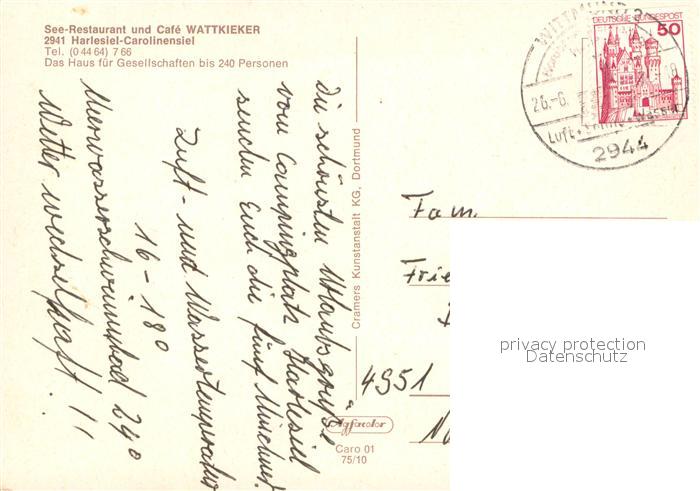 See-Restaurant und Café WATTKIEKER
2941 Harlesiel-Carolinensiel
Tel. (0 44 64) 7 66
Das Haus für Gesellschaften bis 240 Personen
Die schönsten Urlaubsgrüße
vom Campingplatz Harlesiel
senden Euch die fünf
Luft- und Wassertemperatur
16 - 18°
Meerwasserschwimmbad 29°
Wetter wechselhaft!!
Cramers Kunstanstalt KG, Dortmund
Agfacolor
Caro 01
75/10
WITTMUND 2
26.-6.
Luft
2944
DEUTSCHE BUNDESPOST
50
Fam.
Frie
4951
privacy protection
Datenschutz